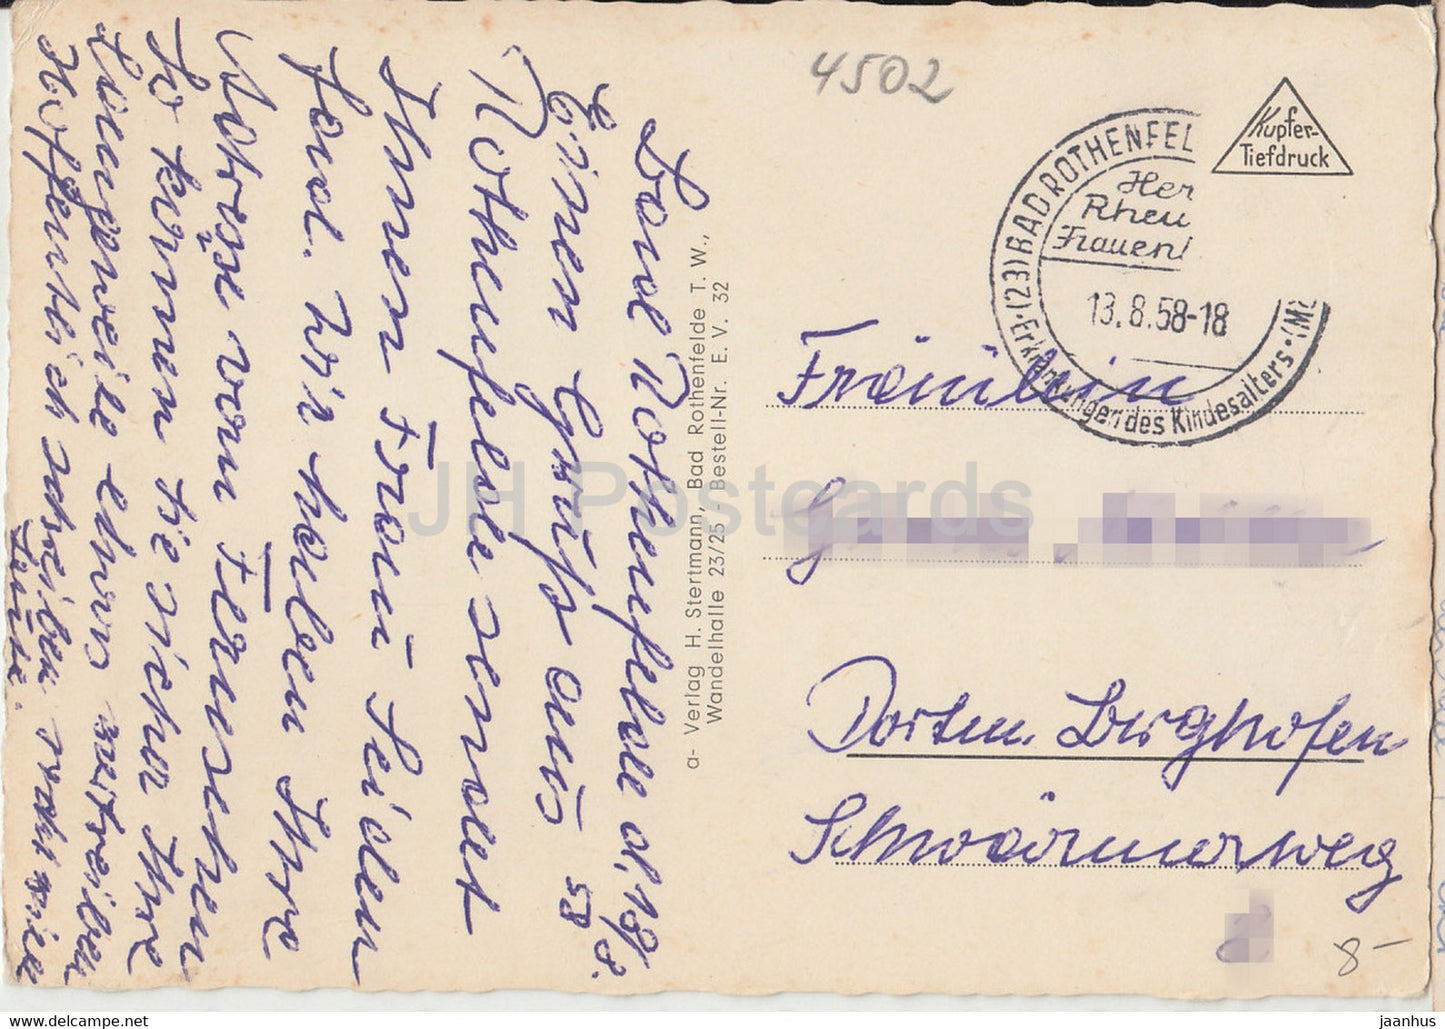 Bad Rothenfelde d. 13/8.
58
Einen Gruß aus
Rothenfelde sendet
Ihnen Frau Seiden
Wir haben Ihre
Adresse vom
So können Sie sicher Ihre
Langeweile etwas vertreiben
Hoffentlich schreiben
a- Verlag H. Stertmann, Bad Rothenfelde T. W.,
Wandelhalle 23/25 - Bestell-Nr. E. V. 32
4502
Kupfer-
Tiefdruck
(23) BAD ROTHENFEL
Her
Rheu
Frauen
13.8.58-18
Erkrankungen des Kindesalters
Fräulein
Dortm. Berghofen
Schwärmerweg
8-
JH Postcards
www.delcampe.net
jaanhus